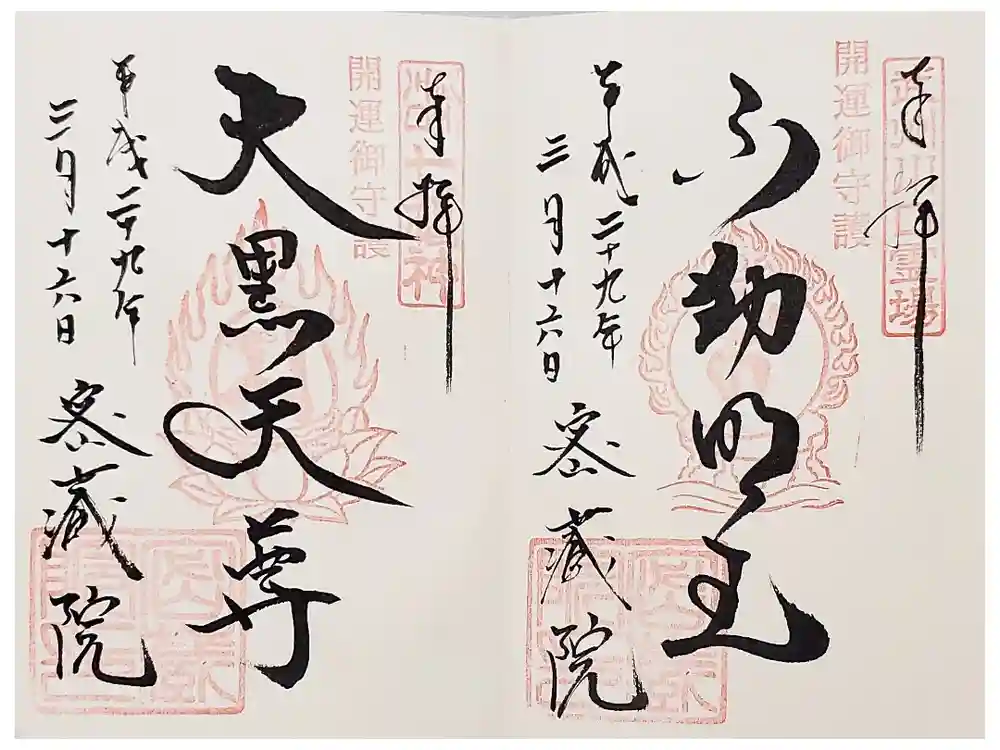 奉拝
開運御守護
不動明王
平成二十九年
二月十六日
密蔵院
奉拝
開運御守護
大黒天尊
平成二十九年
二月十六日
密蔵院